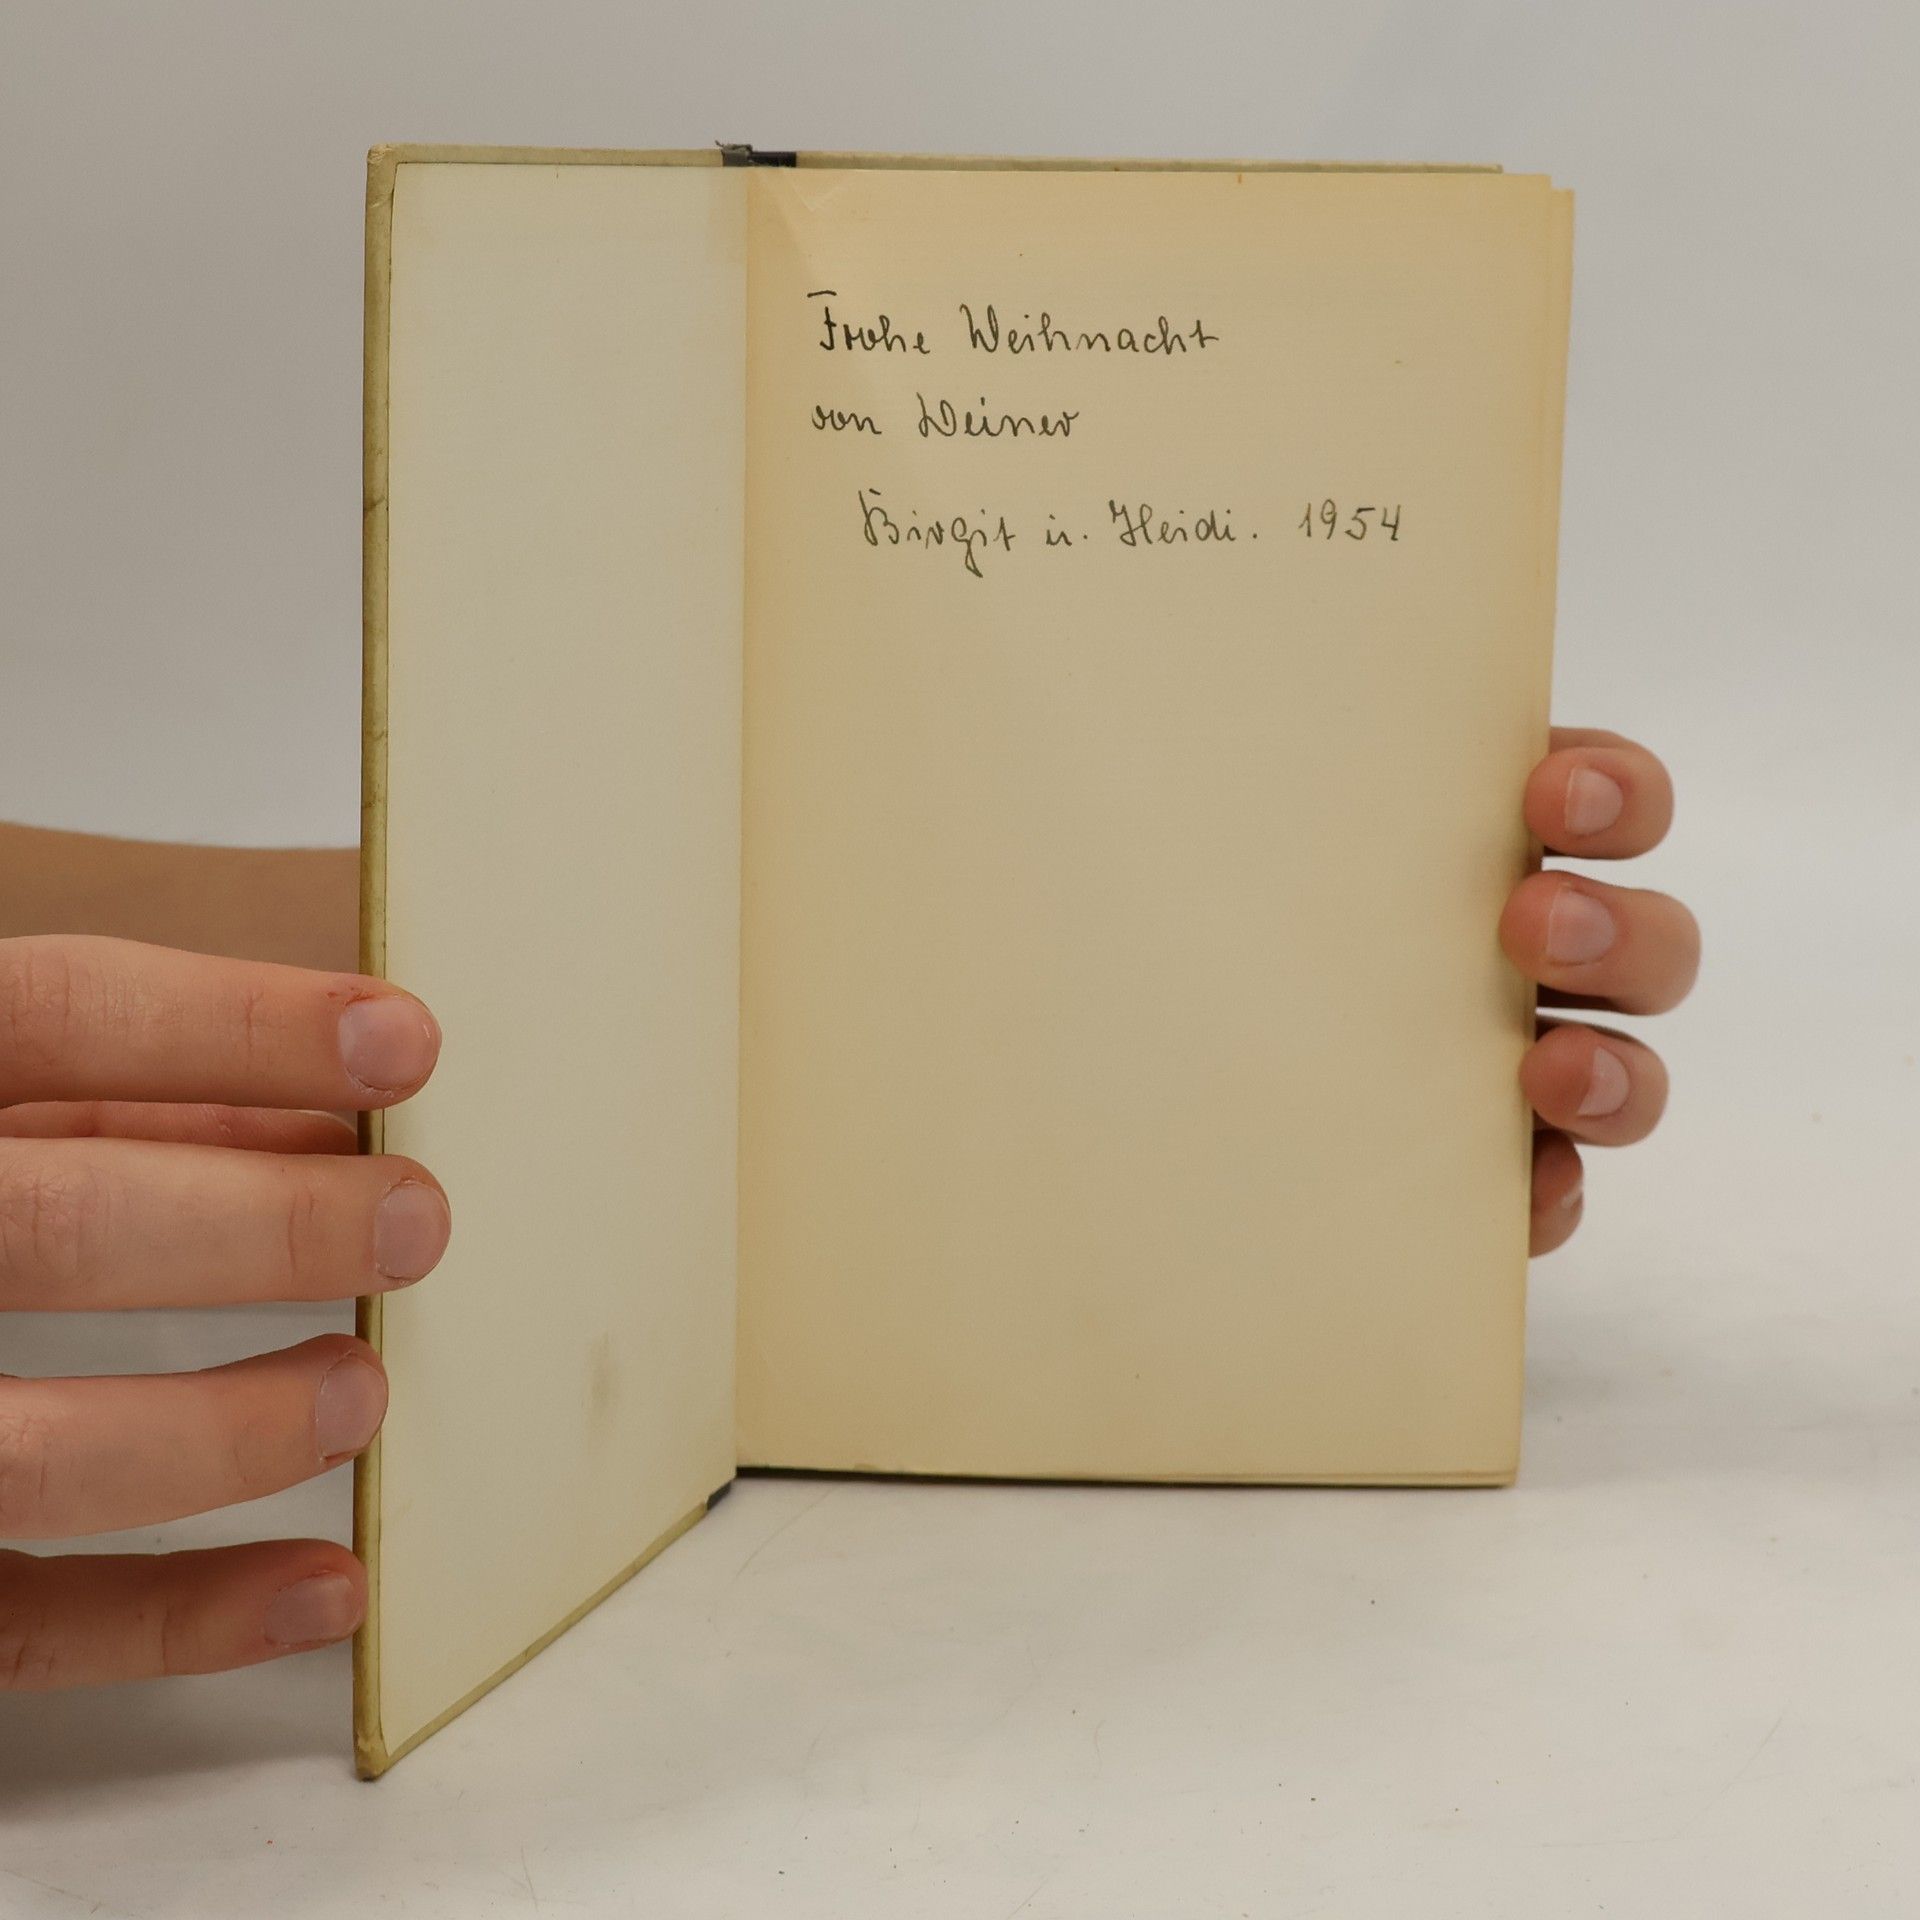 Frohe Weihnacht
von Deiner
Birgit u. Heidi. 1954